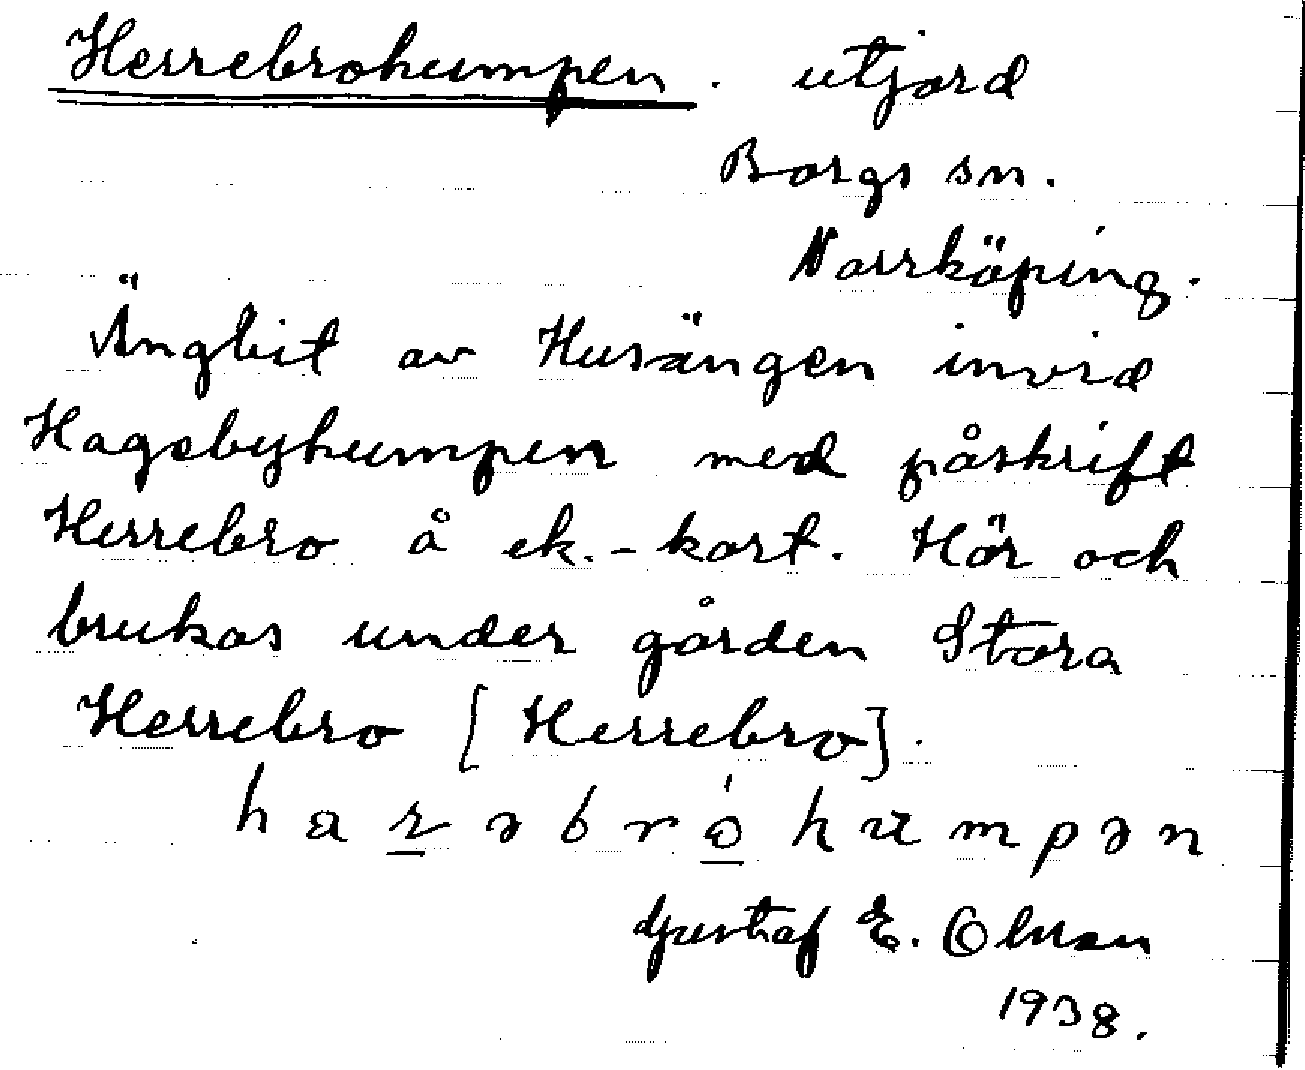 Herrebrohumpen. utjord
Borgs sn.
Norrköping.
Ängbit av Husängen invid
Hagebyhumpen med påskrift
Herrebro å ek.-kart. Hör och
brukas under gården Stora
Herrebro [Herrebro].
Gustaf E. Olsson
1938.